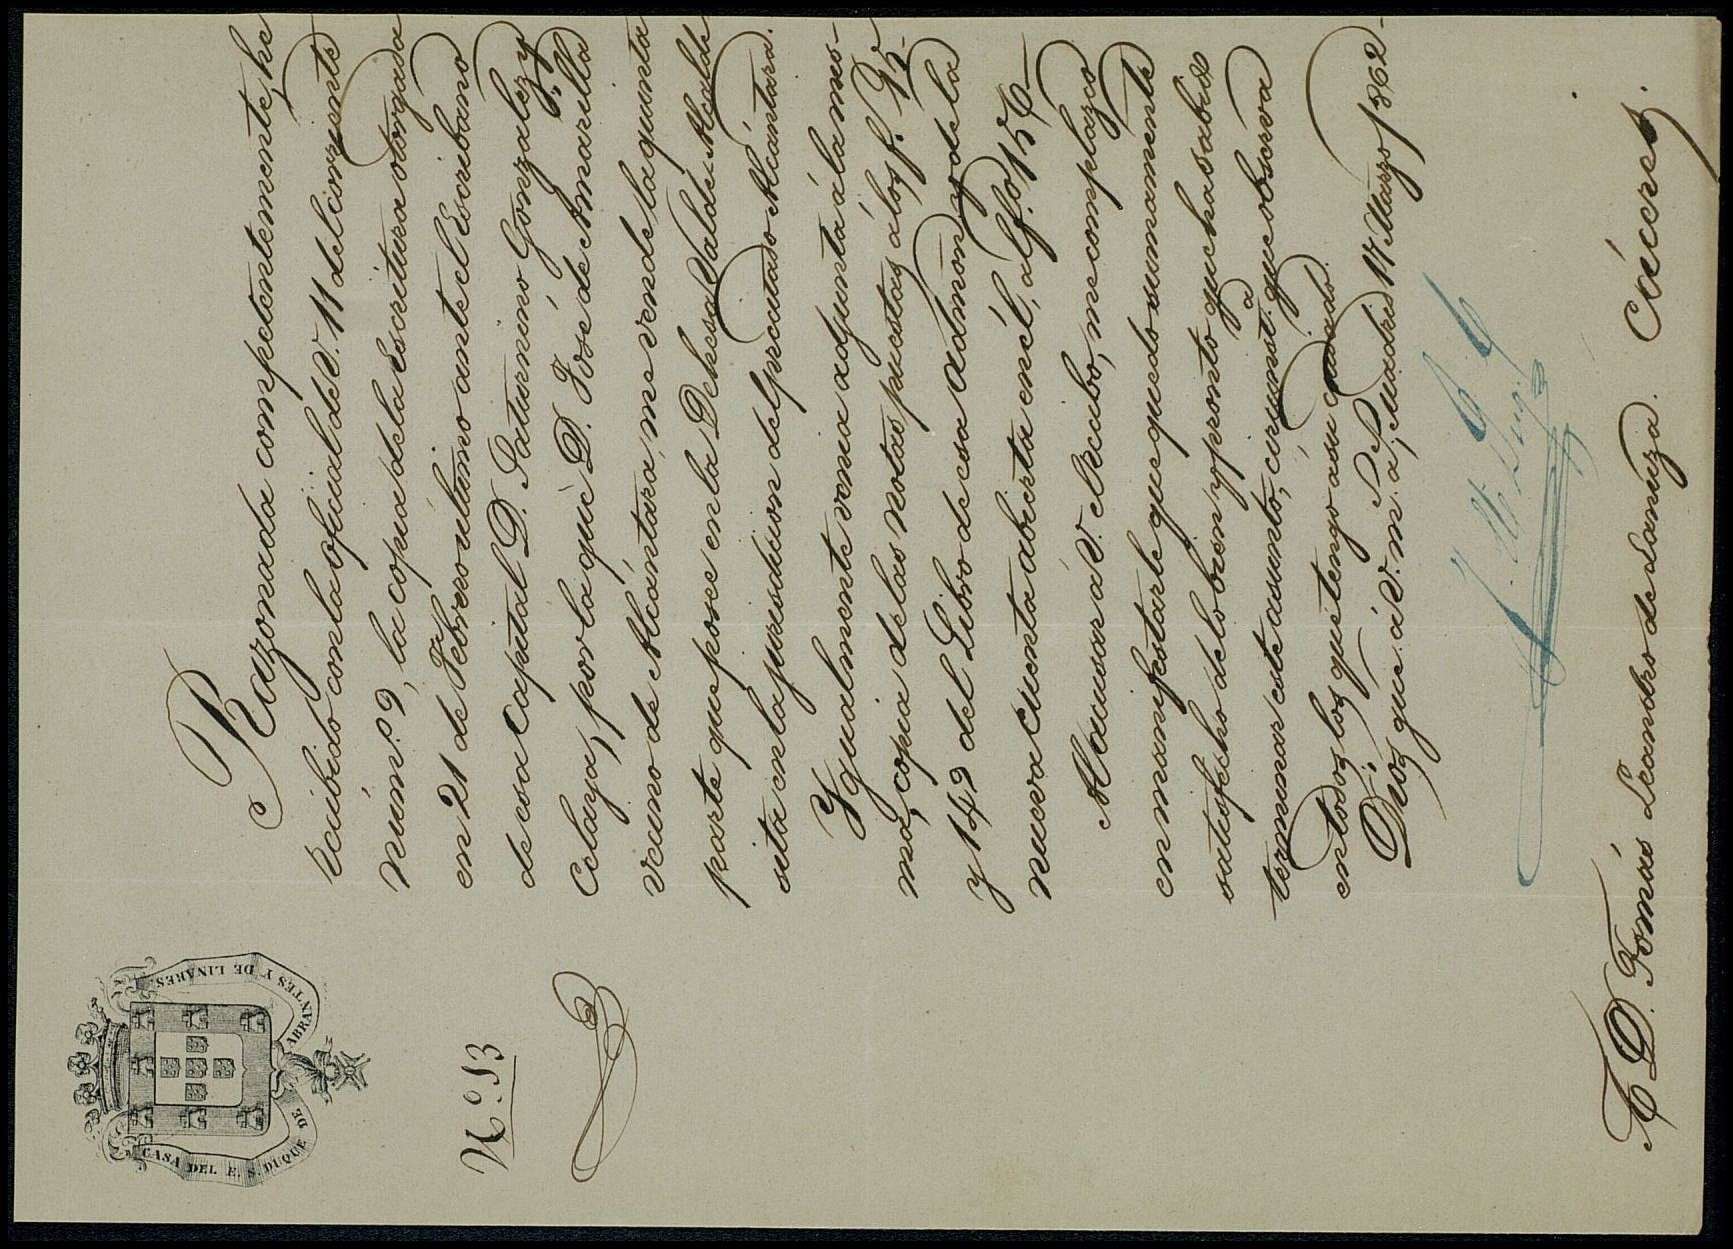 CASA DEL E. S. DUQUE DE ABRANTES Y DE LINARES
Nº 13
Razonada competentemente, he
recibido con la oficial de V. 11 del corriente
núm.º 9, la copia de la escritura otorgada
en 21 de Febrero último ante el Escribano
de esa Capital D. Saturnino Gonzalez y
Celaya, por la que D. José de Amarilla
vecino de Alcántara, me vende la quinta
parte que posee en la Dehesa Valde-Alcalde
sita en la jurisdicion del precitado Alcántara.
Ygualmente venia adjunta á la mis-
ma, copia de las notas puestas á los f.
y 149 del Libro de esa Admon y de la
nueva cuenta abierta en él, al f.º 156-
Al acusar á V. el recibo, me complazco
en manifestarle que quedo sumamente
satisfecho de lo bien y pronto que ha sabido
terminar este asunto, circunst.ª que observa
en todos los que tengo a su cuidado.
Dios gúe. á V. m. a.s Madrid 17 Marzo 1862-
A D. Tomás Leandro de Lanuza. Cáceres.